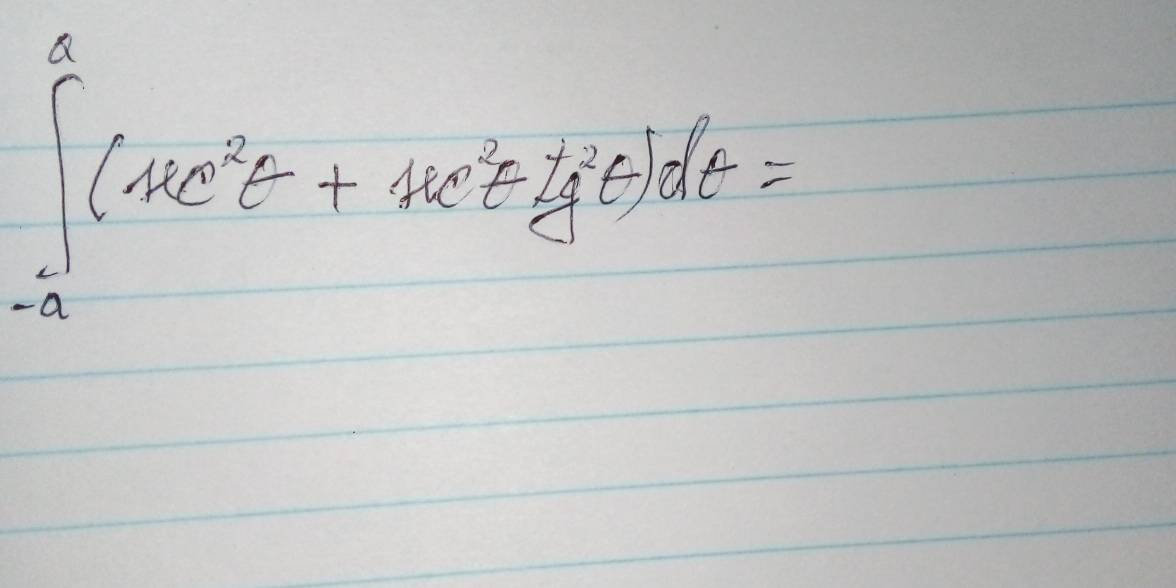 ∫_{-a}^{a} (sec²θ + sec²θ tg²θ)dθ =